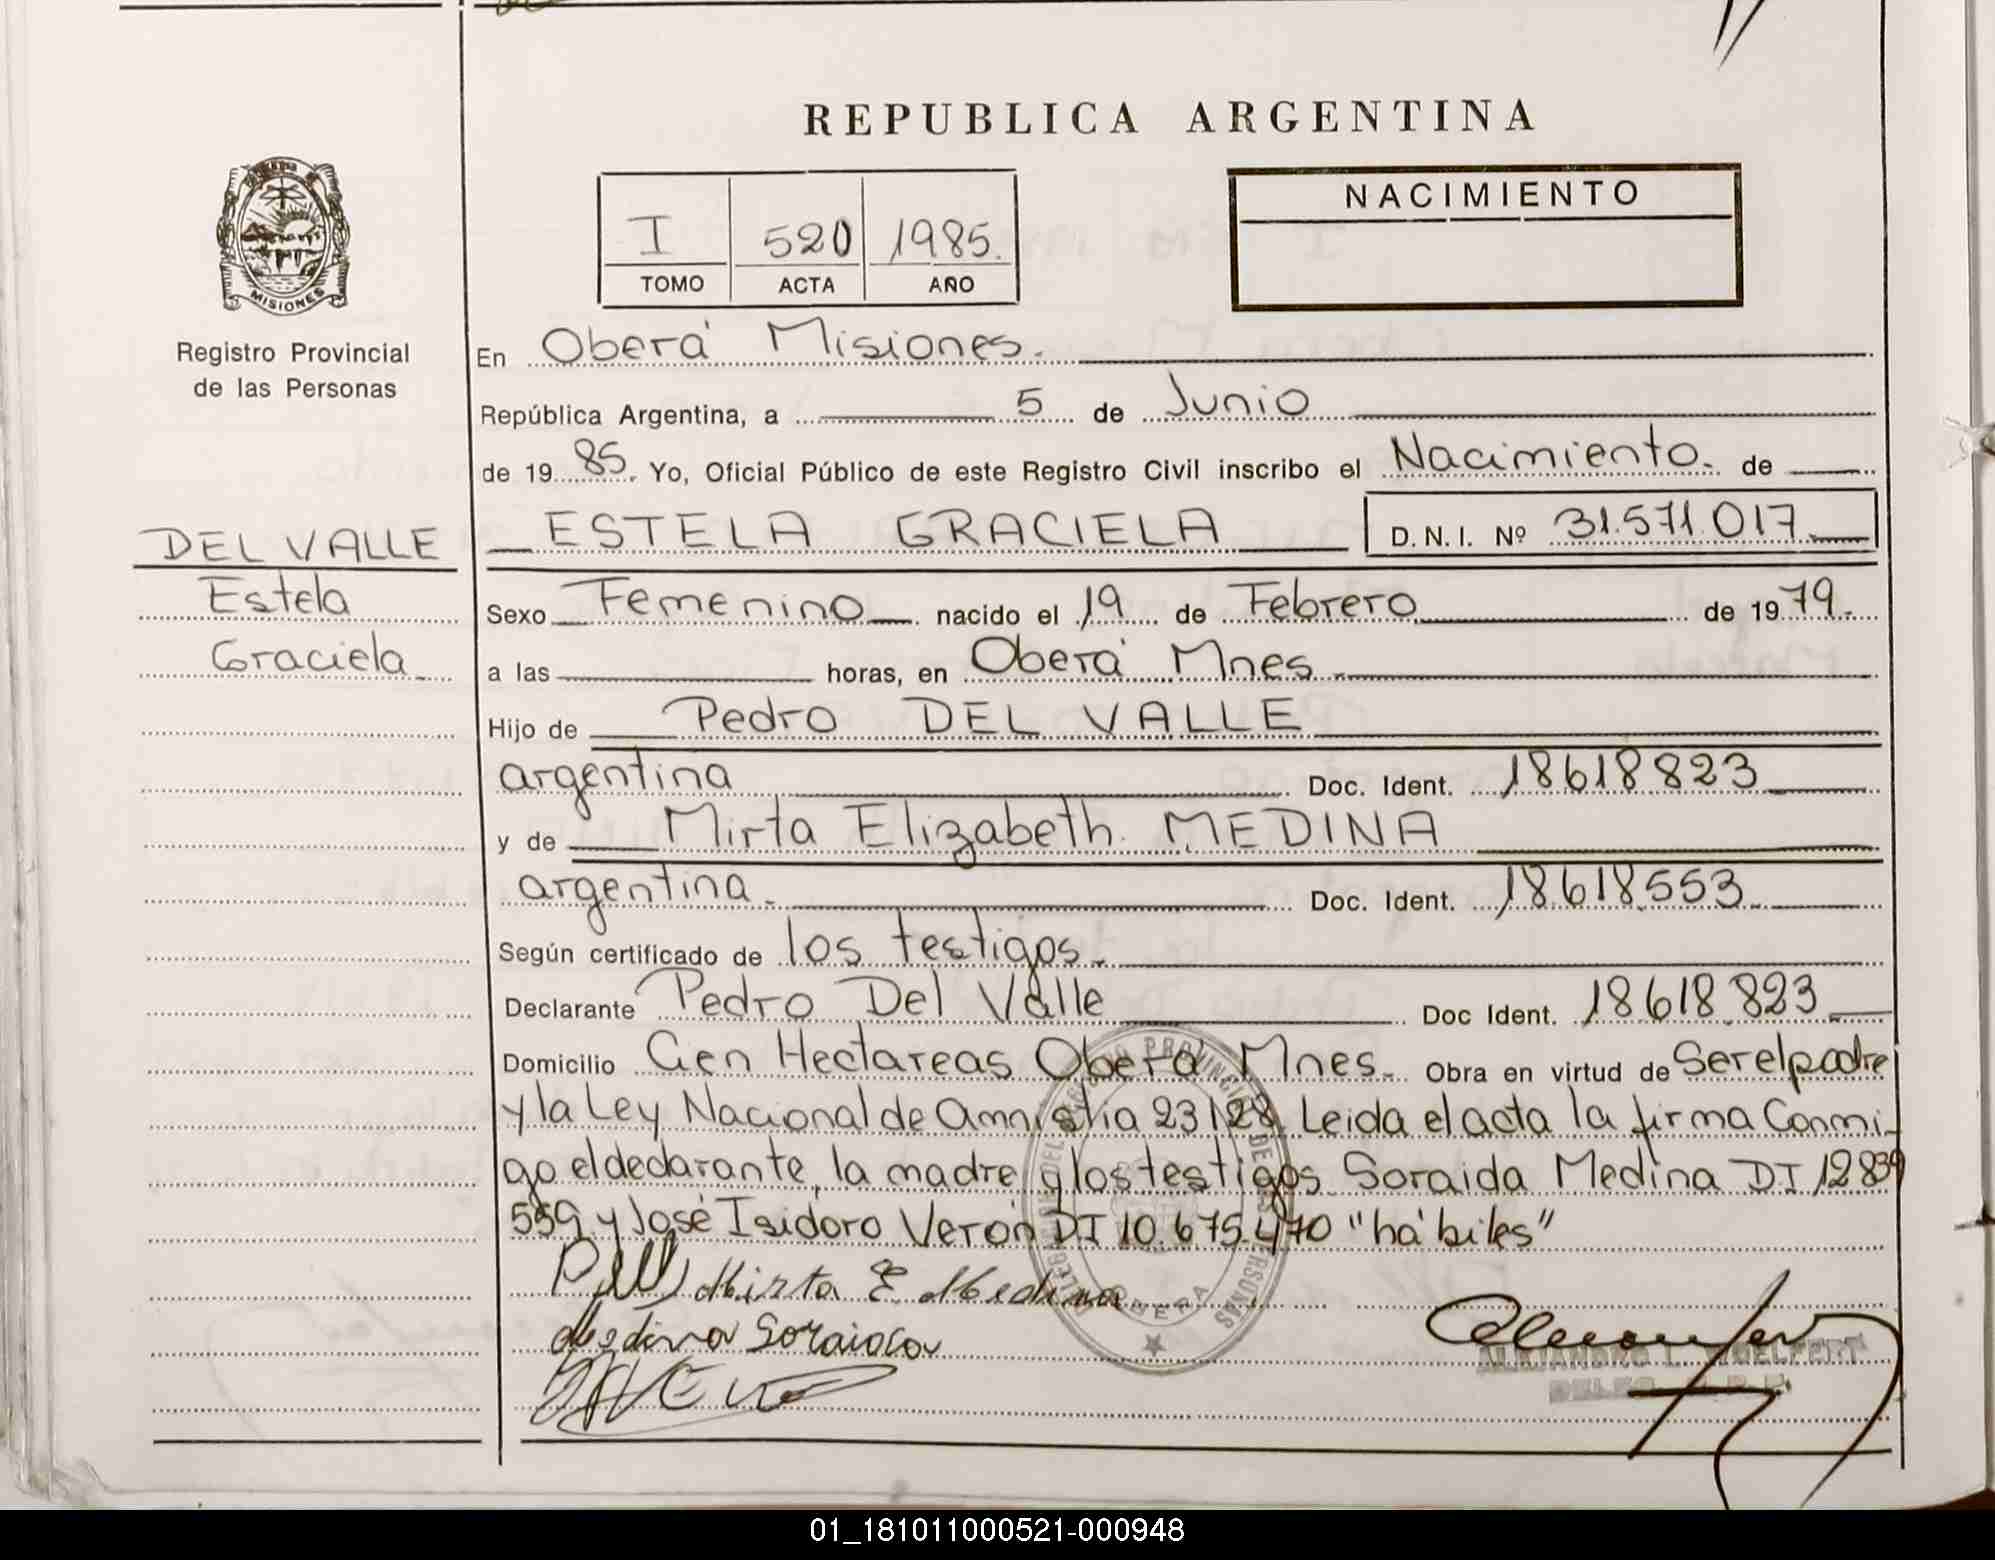 REPUBLICA ARGENTINA
I 520 1985.
TOMO ACTA AÑO
NACIMIENTO
MISIONES
Registro Provincial
de las Personas
En Oberá Misiones.
República Argentina, a 5 de Junio
de 19 85. Yo, Oficial Público de este Registro Civil inscribo el Nacimiento. de
DEL VALLE
Estela
Graciela
ESTELA GRACIELA D.N.I. Nº 31.571.017
Sexo Femenino nacido el 19 de Febrero de 19 79.
a las horas, en Oberá Mnes
Hijo de Pedro DEL VALLE
argentina Doc. Ident. 18618823
y de Mirta Elizabeth MEDINA
argentina. Doc. Ident. 18.618.553
Según certificado de los testigos.
Declarante Pedro Del Valle Doc Ident. 18618.823
Domicilio Cien Hectareas Oberá Mnes. Obra en virtud de Ser el padre
y la Ley Nacional de Amnistia 23128. Leida el acta la firma Conmi-
go el declarante, la madre y los testigos Soraida Medina DI 12839
559 y José Isidoro Verón DI 10.675.470 "hábiles"
Mirta E Medina
Medina Soraida
OBERA
01_181011000521-000948